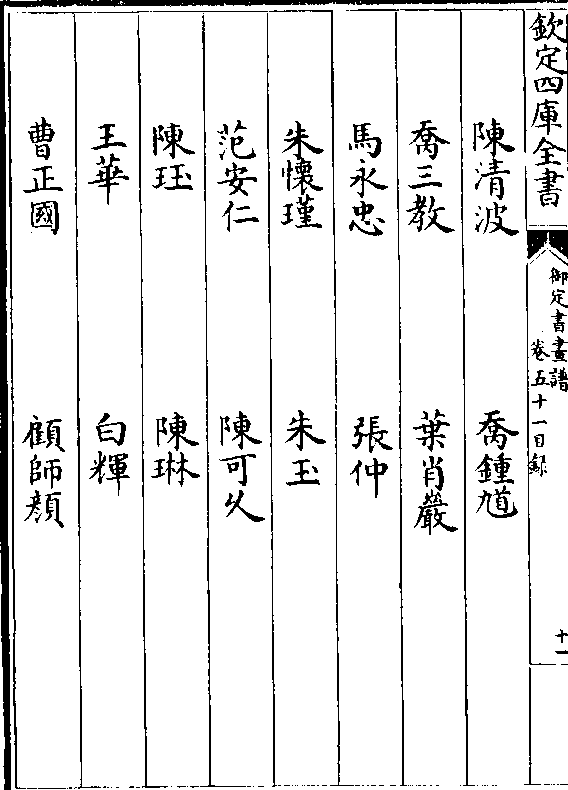 欽定四庫全書
御定書畫譜
卷五十一目録
十一
陳清波 喬鍾馗
喬三教 葉肖巖
馬永忠 張仲
朱懷瑾 朱玉
范安仁 陳可久
陳珏 陳琳
王華 白輝
曹正國 顧師顔